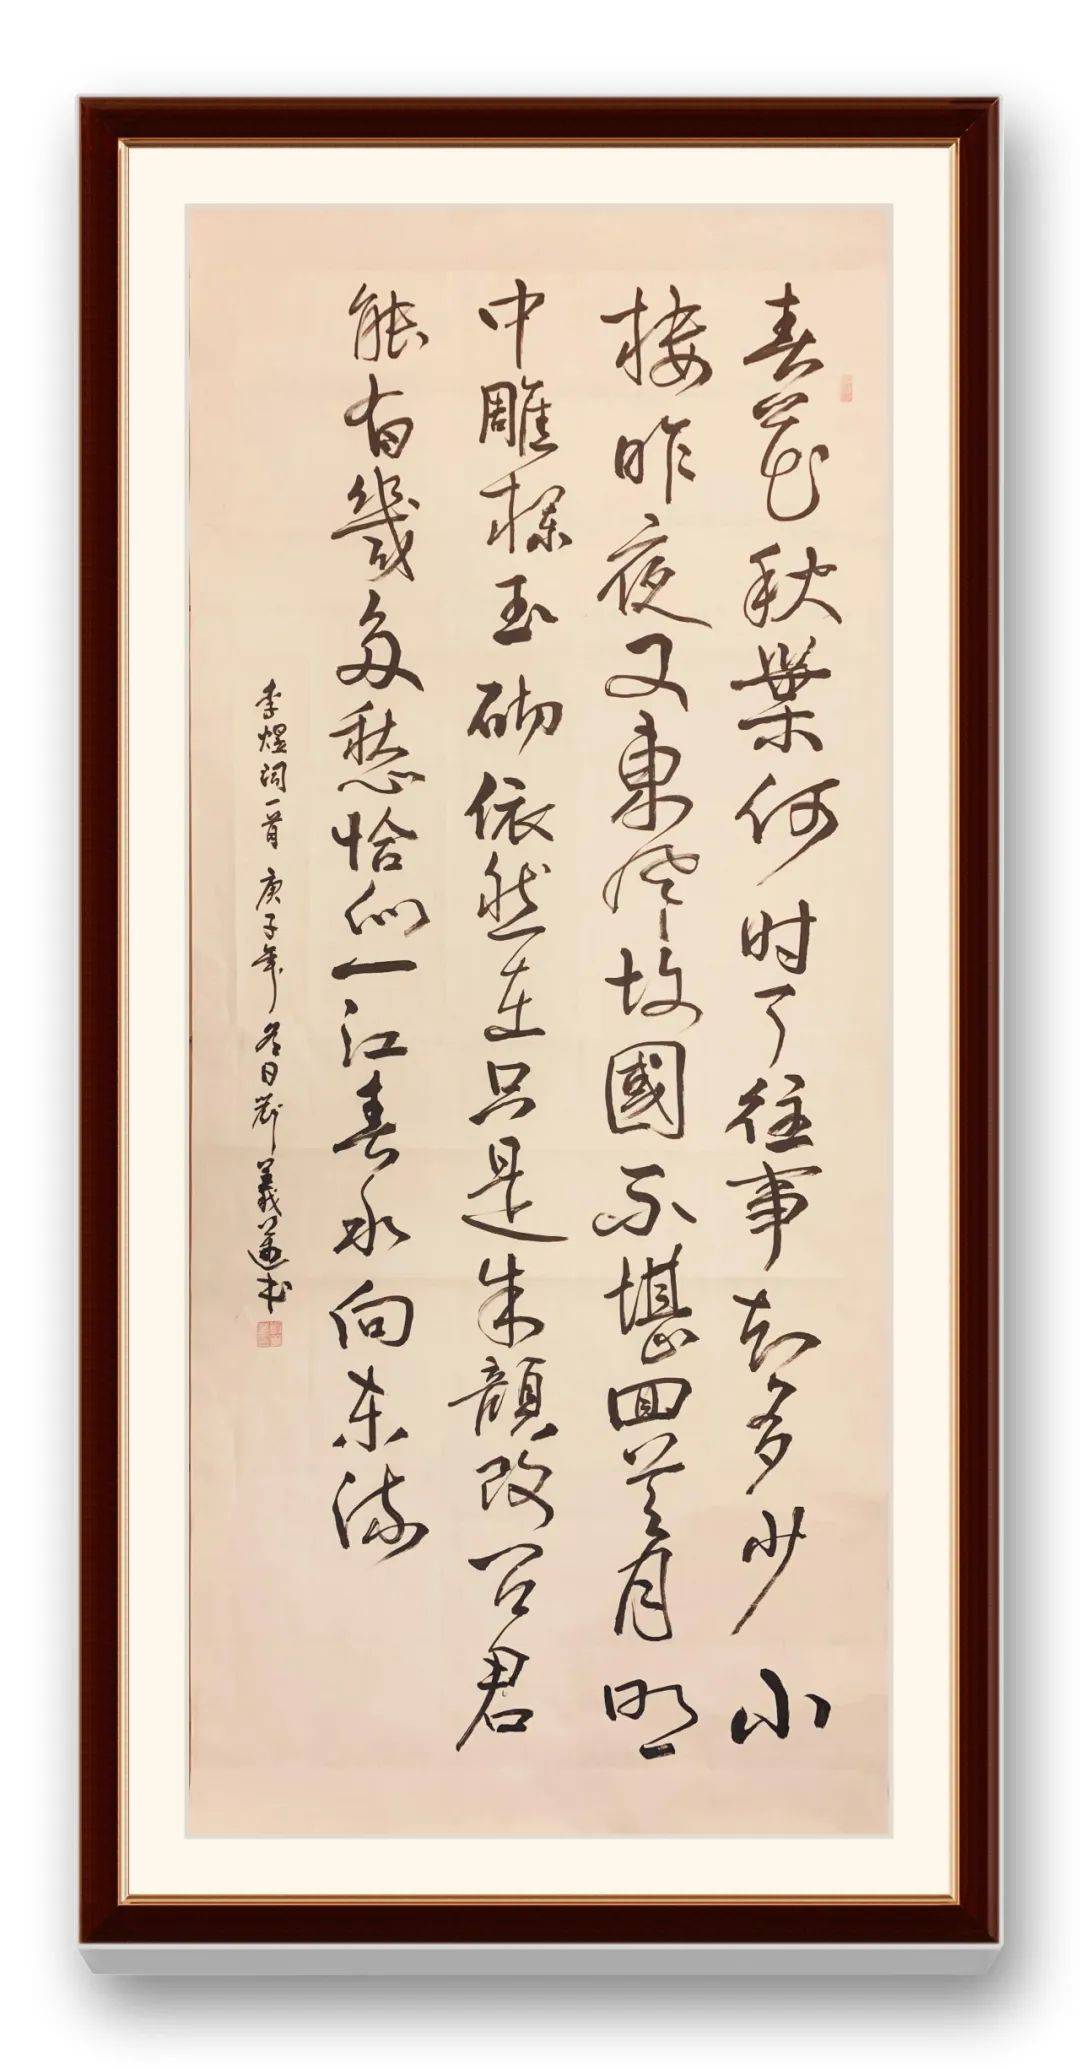 春花秋葉何时了往事知多少小
楼昨夜又東风故國不堪回首月明
中雕栏玉砌依然在只是朱顔改问君
能有幾多愁恰似一江春水向东流
李煜词一首 庚子年冬日 義 书